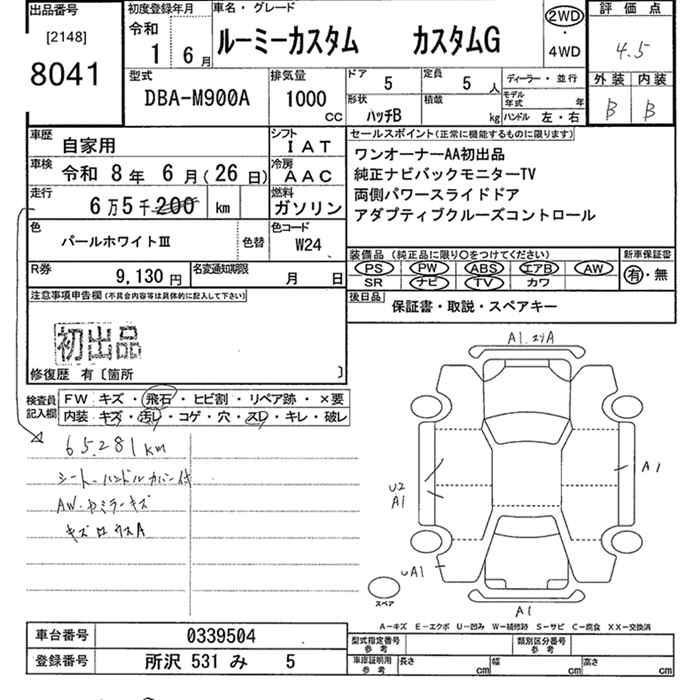 出品番号
[2148]
8041
初度登録年月
令和
1 6月
車名・グレード
ルーミーカスタム カスタムG
2WD
・
4WD
評価点
4.5
外装 内装
B B
型式
DBA-M900A
排気量
1000
CC
ドア
5
定員
5人
形状
ハッチB
積載
kg
ディーラー・並行
モデル年式 年
ハンドル 左・右
車歴
自家用
シフト
IAT
車検
令和 8年 6月(26日)
冷房
AAC
走行
6万5千200 km
燃料
ガソリン
色
パールホワイトⅢ
色替
色コード
W24
R券
9,130円
名変通知期限
月 日
セールスポイント(正常に機能するものに限ります)
ワンオーナーAA初出品
純正ナビバックモニターTV
両側パワースライドドア
アダプティブクルーズコントロール
装備品(純正品に限り〇をつけてください)
PS PW ABS エアB AW
SR ナビ TV カワ
新車保証書
有・無
後日品
保証書・取説・スペアキー
注意事項申告欄(不具合内容等は具体的に記入して下さい)
初出品
修復歴 有〔箇所 〕
検査員記入欄
FW キズ・飛石・ヒビ割・リペア跡・×要
内装 キズ・汚レ・コゲ・穴・スレ・キレ・破レ
65.281km
シート・ハンドルカバー付
AW・
キズ
A1.
A1
U2
A1
A1
A1
スペア
A-キズ E-エクボ U-凹み W-補修跡 S-サビ C-腐食 XX-交換済
車台番号
0339504
登録番号
所沢 531 み 5
型式指定番号
参考
類別区分番号
参考
車庫証明用
参考
長さ cm 幅 cm 高さ cm